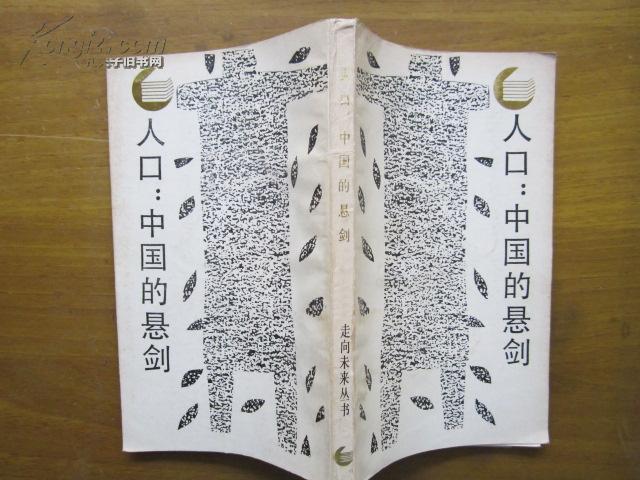 Kongfz.com
孔夫子旧书网
人口：中国的悬剑
人口 中国的悬剑
走向未来丛书
人口：中国的悬剑